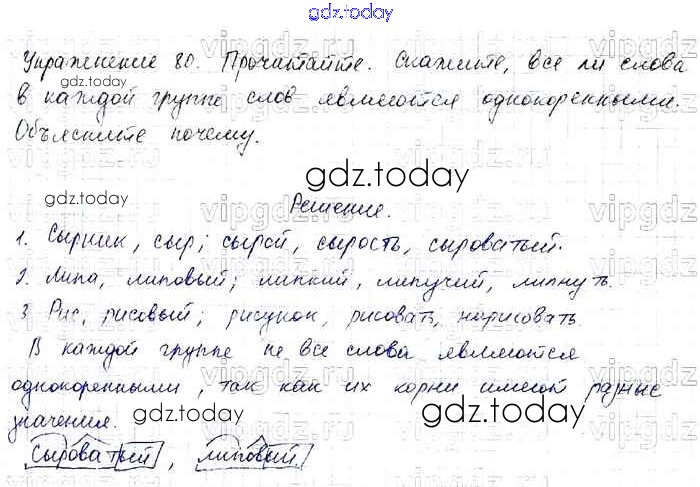 gdz.today
Упражнение 80. Прочитайте. Скажите, все ли слова
в каждой группе слов являются однокоренными.
Объясните почему.
gdz.today
gdz.today
Решение.
1. Сырник, сыр; сырой, сырость, сыроватый.
gdz.today
2. Липа, липовый; липкий, липучий, липнуть.
3. Рис, рисовый; рисунок, рисовать, нарисовать.
В каждой группе не все слова являются
однокоренными, так как их корни имеют разные
значения.
gdz.today
gdz.today
Сыроватый, липовый.
vipgdz.ru
vipgdz.ru
vipgdz.ru
vipgdz.ru